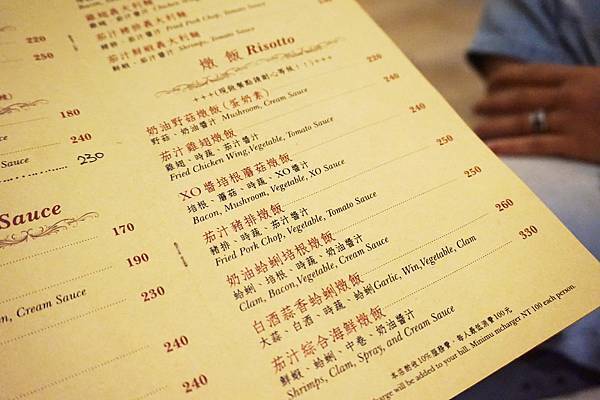 雞翅義大利麵
茄汁豬排義大利麵
豬排、茄汁醬汁 Fried Pork Chop, Tomato Sauce
茄汁鮮蝦義大利麵
鮮蝦、茄汁醬汁 Shrimps, Tomato Sauce
220
250
燉飯 Risotto
+++(現做餐點請耐心等候！！)+++
奶油野菇燉飯(蛋奶素)
220
野菇、奶油醬汁 Mushroom, Cream Sauce
茄汁雞翅燉飯
240
雞翅、時蔬、茄汁醬汁
Fried Chicken Wing,Vegetable, Tomato Sauce
XO醬培根蘑菇燉飯
240
培根、蘑菇、時蔬、XO醬汁
Bacon, Mushroom, Vegetable, XO Sauce
茄汁豬排燉飯
250
豬排、時蔬、茄汁醬汁
Fried Pork Chop, Vegetable, Tomato Sauce
奶油蛤蜊培根燉飯
250
蛤蜊、培根、時蔬、奶油醬汁
Clam, Bacon,Vegetable, Cream Sauce
白酒蒜香蛤蜊燉飯
260
大蒜、白酒、時蔬、蛤蜊Garlic, Win,Vegetable, Clam
茄汁綜合海鮮燉飯
330
鮮蝦、蛤蜊、中卷、奶油醬汁
Shrimps, Clam, Spray, and Cream Sauce
本店酌收10%服務費，每人最低消費100元
charge will be added to your bill. Minimu mcharger NT 100 each person.
180
240
Sauce
230
Sauce
170
190
, Cream Sauce
230
240
240